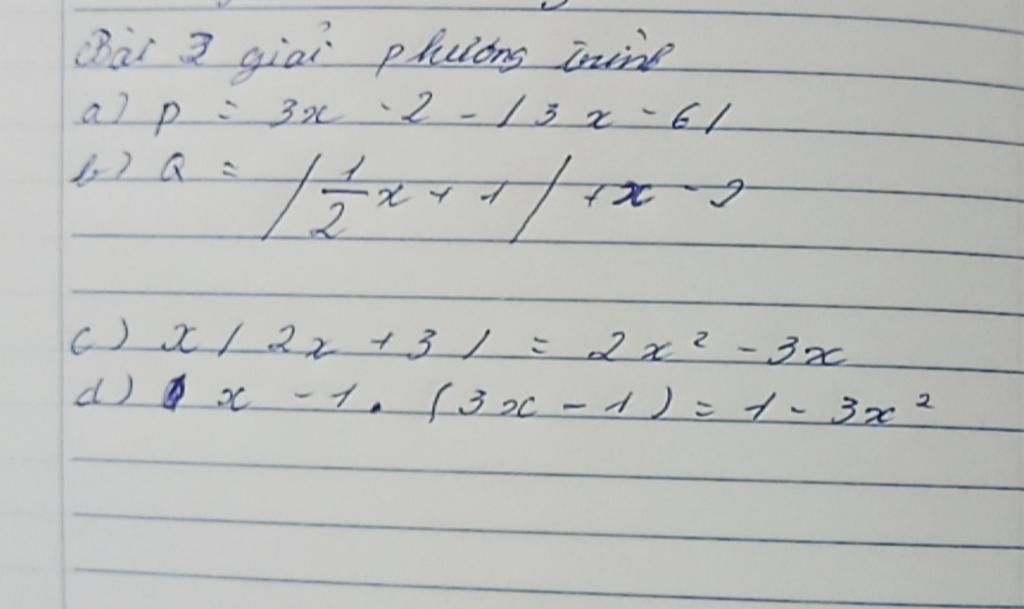 Bài 3 giải phương trình
a) P = 3x - 2 - |3x - 6|
b) Q = |1/2 x + 1| + x - 2
c) x|2x + 3| = 2x² - 3x
d) x - 1 . (3x - 1) = 1 - 3x²